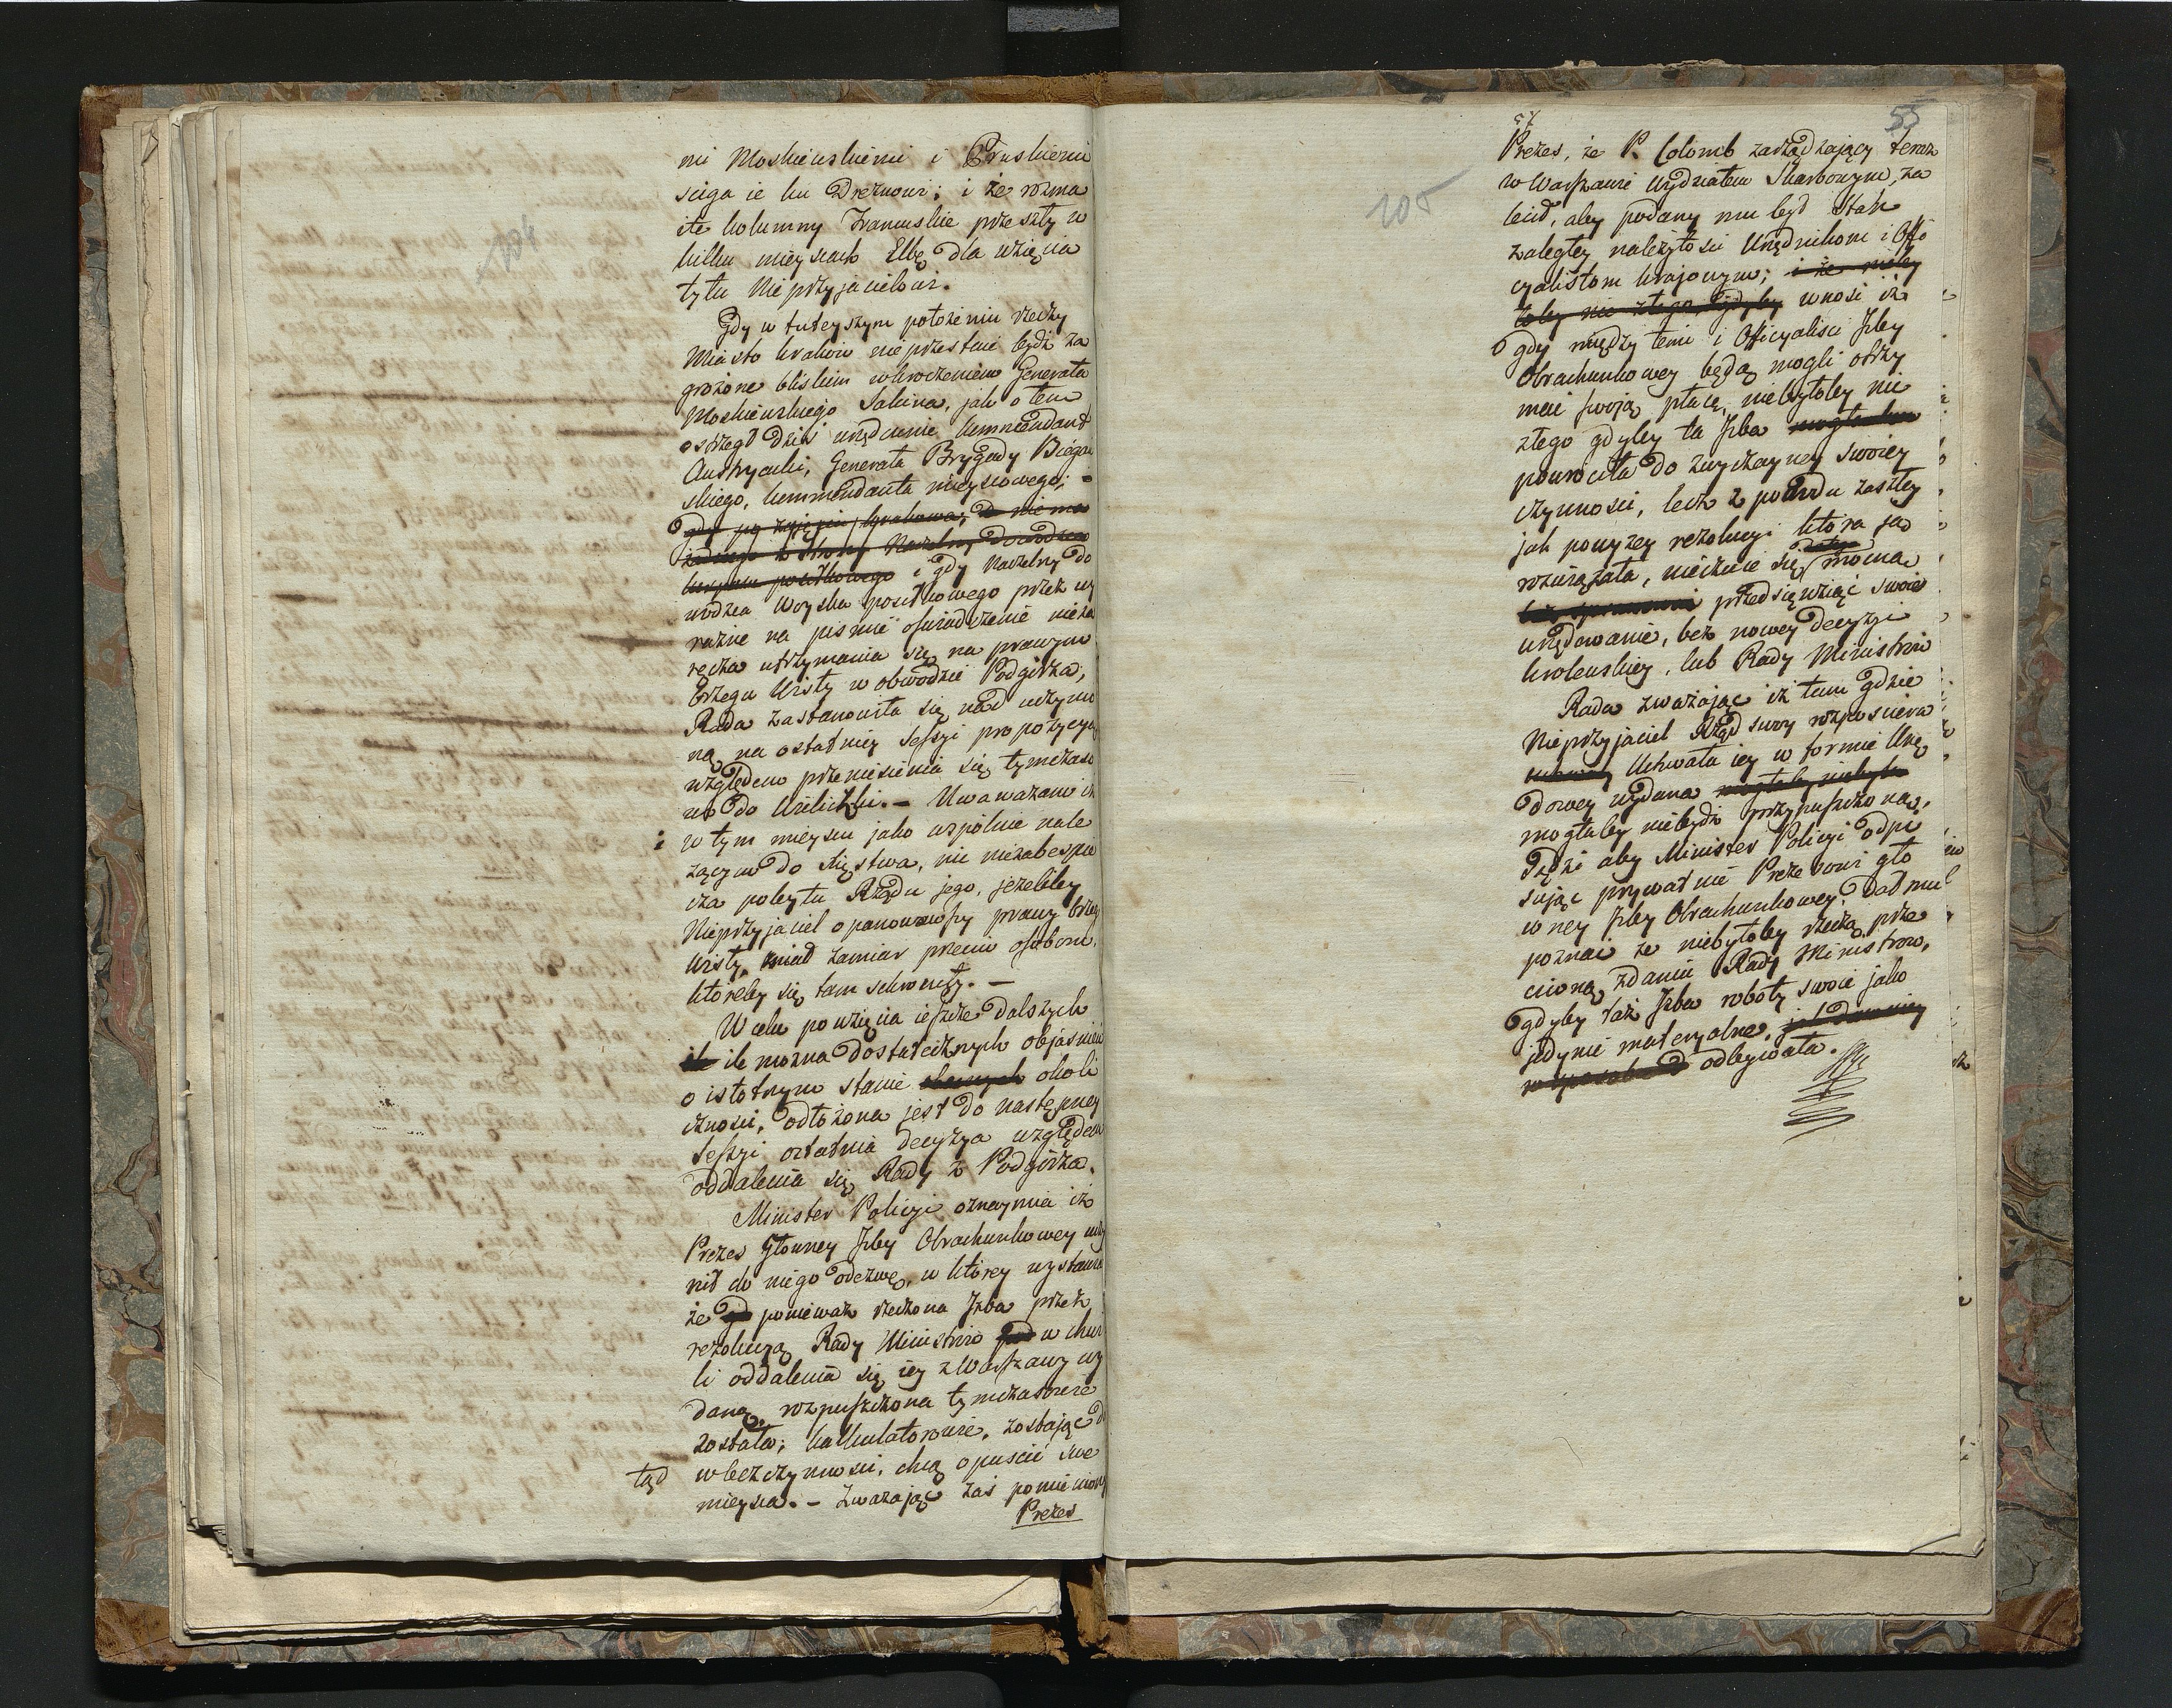 104
mi Moskiewskiemi i Pruskiemi
sciga ie ku Dreznowi; i że rozma
ite kolumny Francuskie przeszły w
kilku mieyscach Elbę dla wzięcia
tyłu Nieprzyjacielowi.
Gdy w tuteyszym położeniu rzeczy
Miasto Kraków nieprzestaie bydź za
grożone bliskim wkroczeniem Generała
Moskiewskiego Sakina, jak o tem
ostrzegł dziś urzędownie kommendant
Austryacki, Generała Brygady Biegań
skiego, kommendanta mieyscowego; -
gdy po zajęciu Krakowa, nie ma
żadnego Naczelny Dowodzca
korpusu posiłkowego i gdy Naczelny Do
wodzca Woyska posiłkowego przez wy
raźne na pismie oświadczenie nieza
ręcza utrzymania się na prawym
brzegu Wisły w obwodzie Podgórza;
Rada zastanowiła się nad uczynio
ną na ostatniey Sessyi propozycyą
względem przeniesienia się tymczaso
wo do Wieliczki. - Uważanem iż
w tym mieyscu jako wspólnie nale
żącym do Xięstwa, nic niezabespie
cza pobytu Rządu jego, jeżeliby
Nieprzyjaciel opanowawszy prawy brzeg
Wisły, miał zamiar przeciw osobom,
któreby się tam schroniły. -
W celu powzięcia ieszcze dalszych
ile można dostatecznych objaśnień
o istotnym stanie obecnych okoli
czności, odłożona jest do następney
Sessyi ostatnia decyzya względem
oddalenia się Rady z Podgórza.
Minister Policyi oznaymia iż
Prezes Głowney Izby Obrachunkowey uczy
nił do niego odezwę, w którey wystawia
że gd ponieważ rzeczona Izba przez
rezolucyą Rady Ministrów pod w chwi
li oddalenia się iey z Warszawy wy
daną, rozpuszczona tymczasowie
została; kalkulatorowie, zostając od
tąd w bezczynności, chcą opuścić swe
mieysca. - Zważając zaś pomieniony
Prezes
57
55
105
Prezes, że P. Colomb zarządzający teraz
w Warszawie Wydziałem Skarbowym, za
lecił, aby podany mu był Stan
zaległey należytości Urzędnikom i Offi
cyalistom kraiowym; i że nieby
łoby nic złego, gdyby wnosi iż
gdy między temi i Officyaliści Izby
Obrachunkowey będą mogli otrzy
mać swoją płacę, niebyłoby nic
złego gdyby ta Izba mogła
powróciła do zwyczayney swoiey
czynności, lecz z powodu zaszłey
jak powyżey rezolucyi która ją
rozwiązała, nieczuie się mocna
przedsięwziąć swoie
urzędowanie, bez nowey decyzyi
krolewskiey, lub Rady Ministrów
Rada zważając iż tam gdzie
Nieprzyjaciel Rząd swoy rozpościera
Uchwała iey w formie Urzę
dowey wydana mogłaby niebyła
mogłaby niebydź przypuszczona,
sądzi aby Minister Policyi odpi
sując prywatnie Prezesowi gło
wney Izby Obrachunkowey, dał mu
poznać że niebyłoby rzeczą prze
ciwną zdaniu Rady Ministrów,
gdyby taż Izba roboty swoie jako
jedynie materyalne, jak dawniey
odbywała.